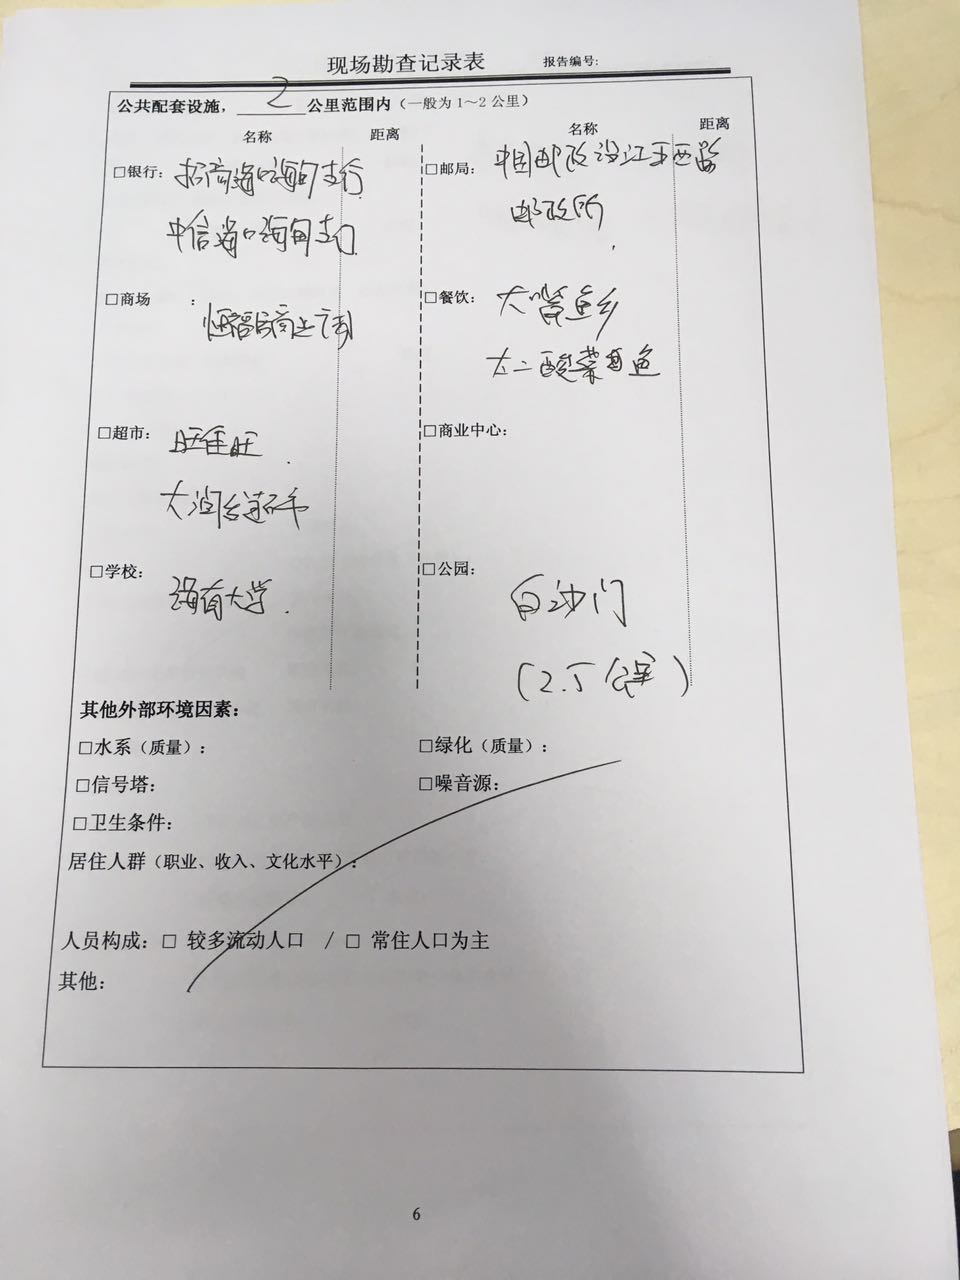 现场勘查记录表 报告编号:
公共配套设施， 2 公里范围内（一般为 1～2 公里）
名称 距离 名称 距离
□银行： 招商海口海甸支行 □邮局： 中国邮政 江西
中信海口海甸支行 邮政所
□商场 ： 商业 □餐饮： 大嘴鱼乡
太二酸菜鱼
□超市： 旺佳旺 □商业中心：
大润 超市
□学校： 海南大学 □公园： 白沙门
（2.5公里）
其他外部环境因素：
□水系（质量）： □绿化（质量）：
□信号塔： □噪音源：
□卫生条件：
居住人群（职业、收入、文化水平）：
人员构成：□ 较多流动人口 / □ 常住人口为主
其他：
6